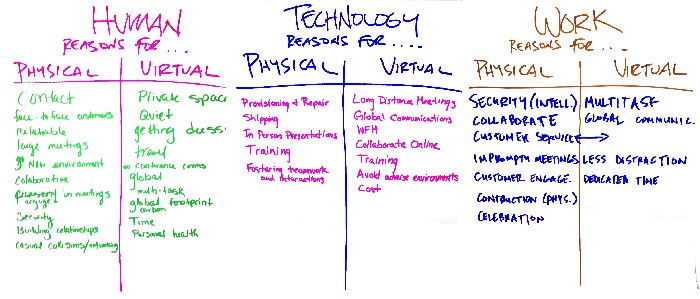 HUMAN
REASONS FOR...
PHYSICAL
Contact
face-to face customers
Relatable
large meetings
New environment
Collaborative
in meetings
Security
Building relationships
Casual collisions/networking
VIRTUAL
Private space
Quiet
getting dressed
travel
no conference rooms
global
multi-task
global footprint
carbon
Time
Personal health
TECHNOLOGY
REASONS FOR.....
PHYSICAL
Provisioning & Repair
Shipping
In Person Presentations
Training
Fostering teamwork
and interactions
VIRTUAL
Long Distance Meetings
Global Communications
WFH
Collaborate Online
Training
Avoid adverse environments
Cost
WORK
REASONS FOR...
PHYSICAL
SECURITY (INTELL.)
COLLABORATE
CUSTOMER SERVICE
IMPROMPTU MEETINGS
CUSTOMER ENGAGE.
CONTRUCTION (PHYS.)
CELEBRATION
VIRTUAL
MULTITASK
GLOBAL COMMUNIC.
LESS DISTRACTION
DEDICATED TIME